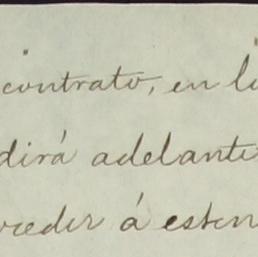 contrato, en l
dirá adelant
ceder á esten